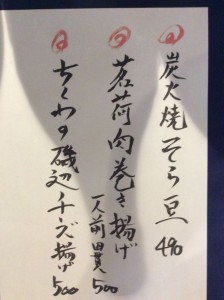 炭火焼そら豆 490
茗荷肉巻き揚げ
一人前 500
ちくわの磯辺チーズ揚げ 500